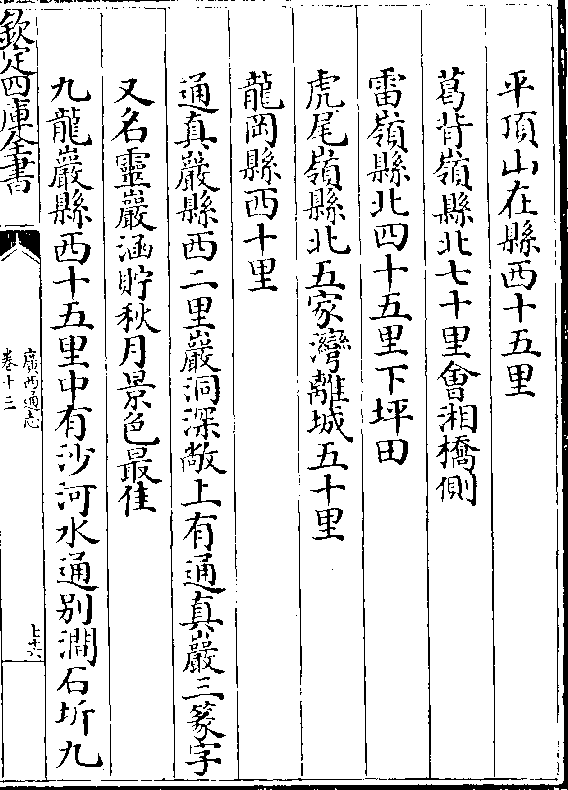 平頂山在縣西十五里
葛背嶺縣北七十里會湘橋側
雷嶺縣北四十五里下坪田
虎尾嶺縣北五家灣離城五十里
龍岡縣西十里
通真巖縣西二里巖洞深敞上有通真巖三篆字
又名靈巖涵貯秋月景色最佳
九龍巖縣西十五里中有沙河水通别澗石圻九
欽定四庫全書
廣西通志
卷十二